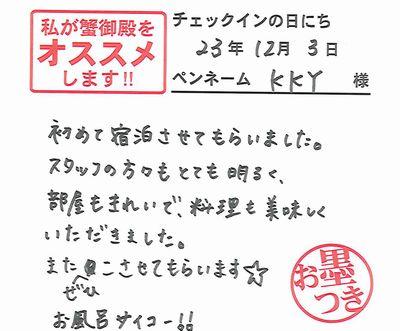 私が蟹御殿を
オススメ
します!!
チェックインの日にち
23年12月3日
ペンネーム KKY 様
初めて宿泊させてもらいました。
スタッフの方々もとても明るく、
部屋もきれいで、料理も美味しく
いただきました。
またぜひこさせてもらいます☆
お風呂サイコー!!
お墨つき